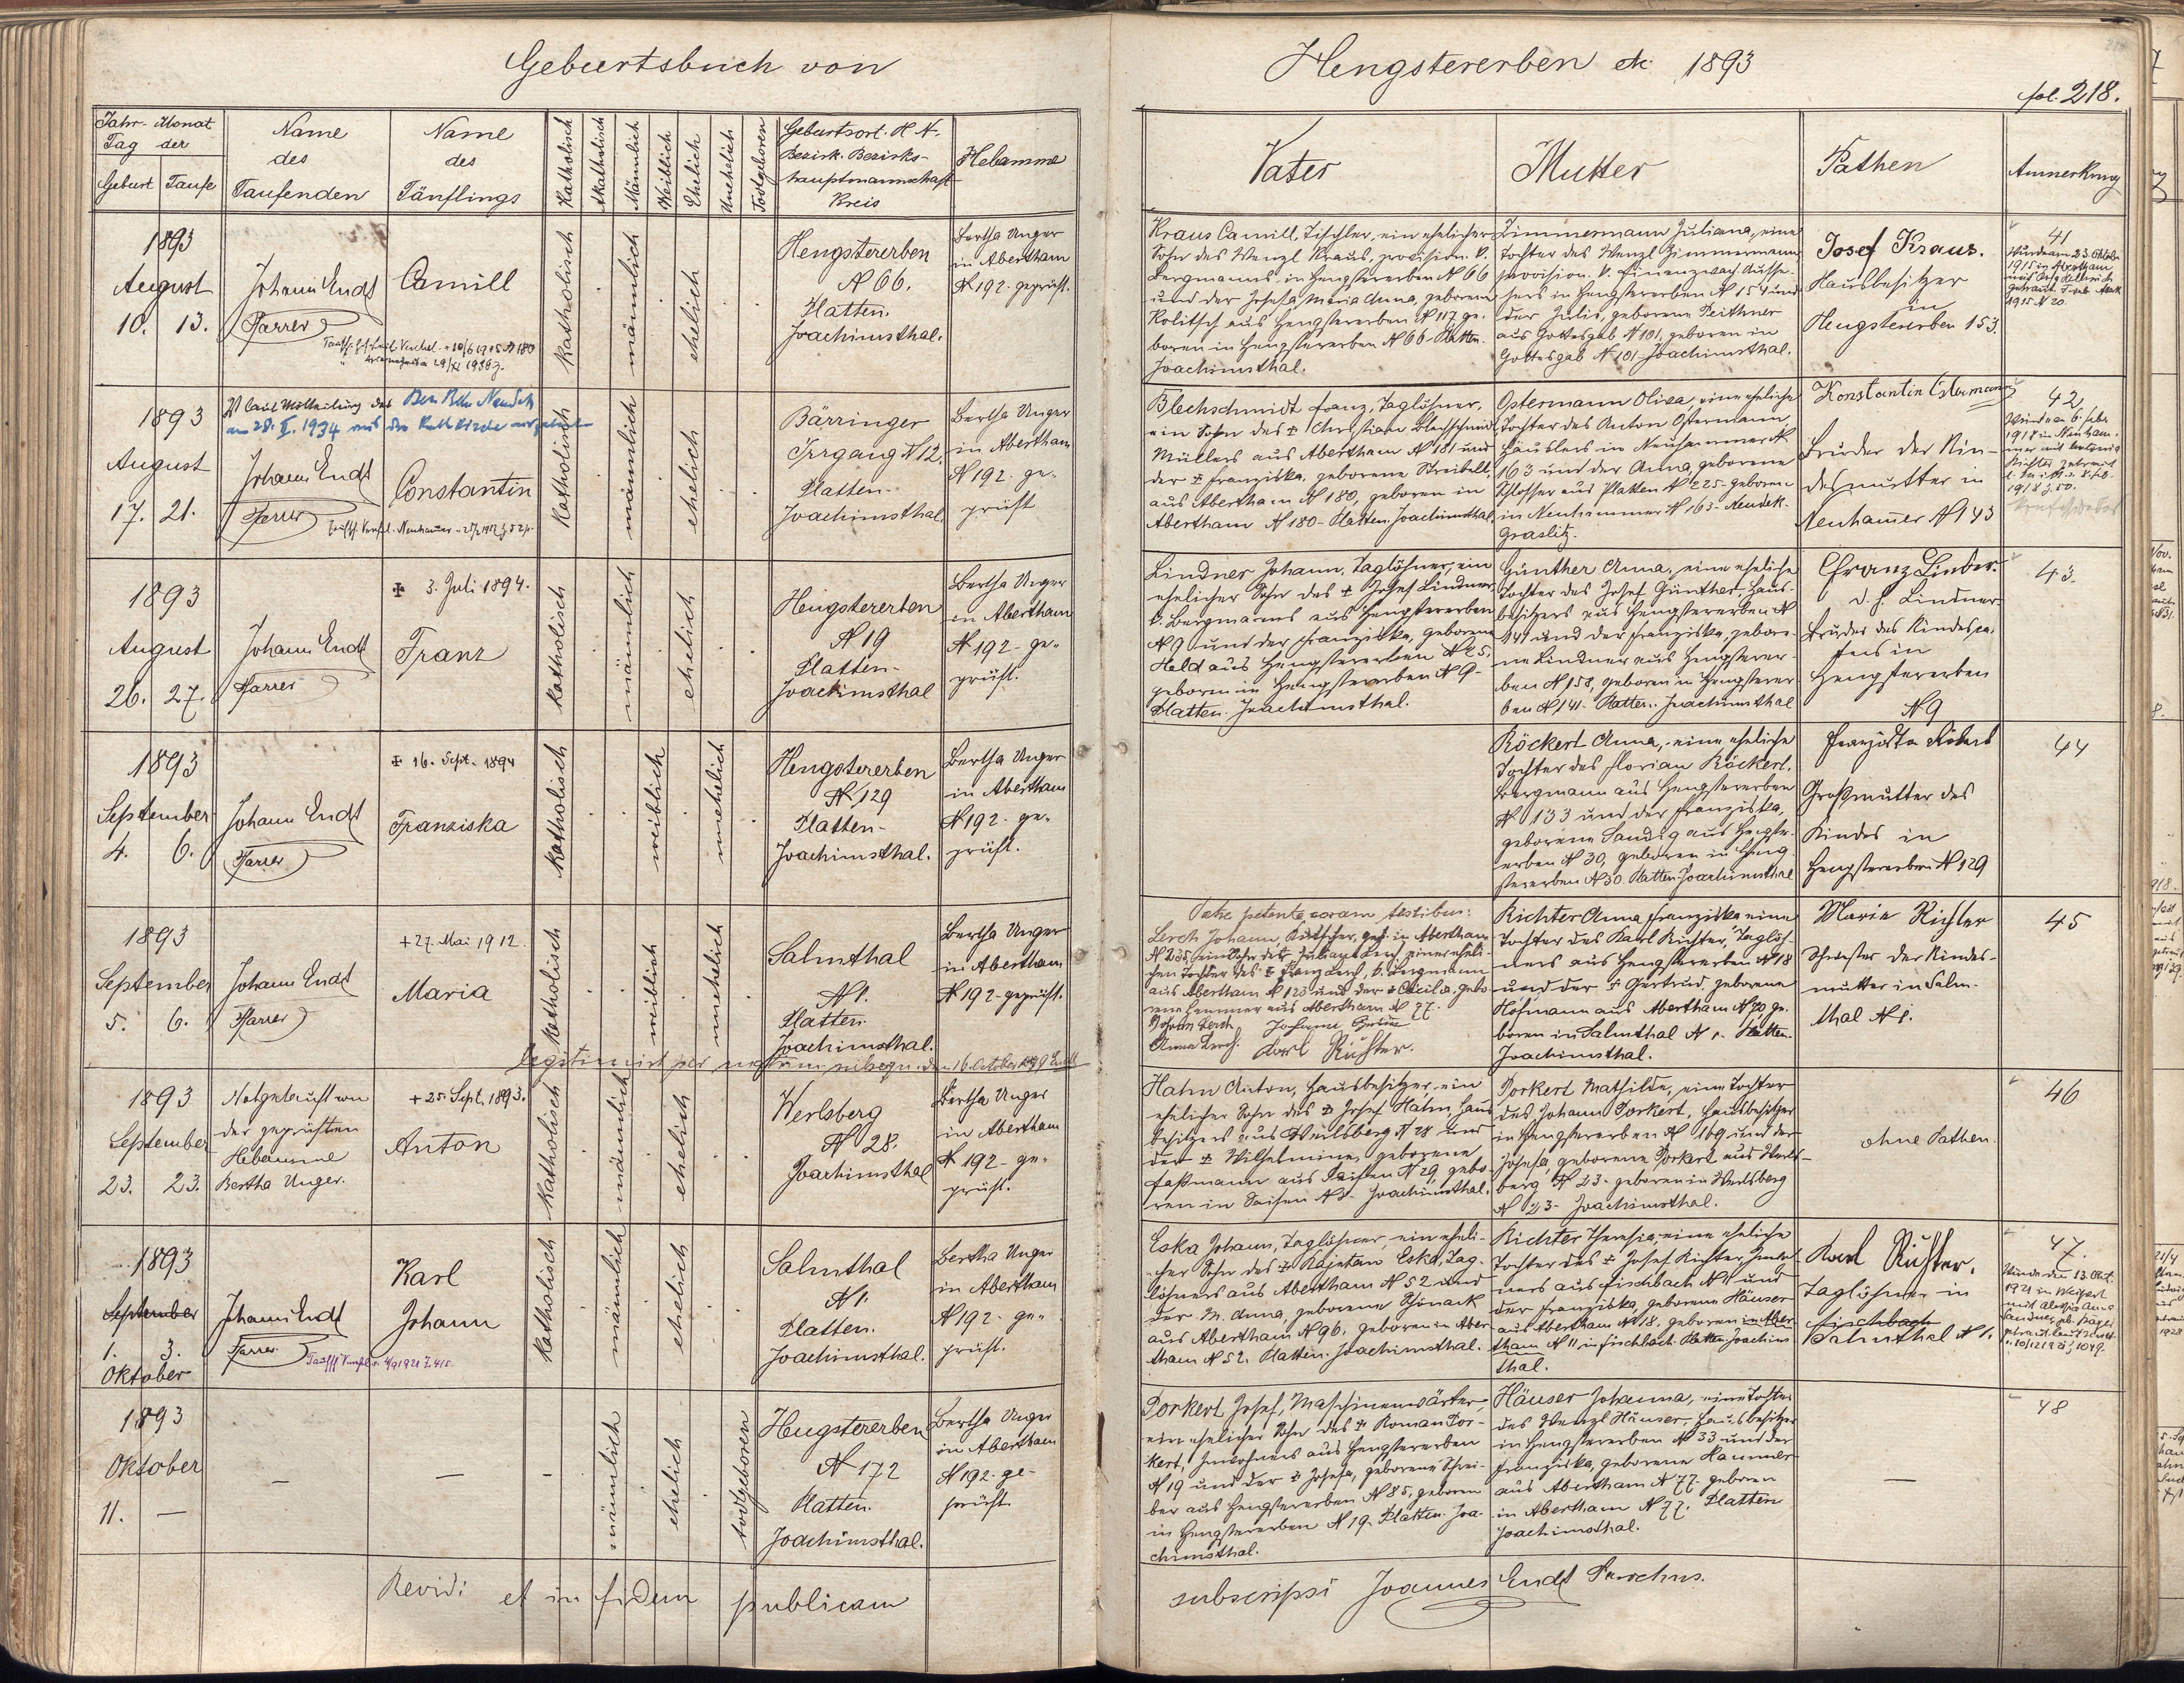 Geburtsbuch von
Hengstererben etc 1893
fol. 218.
Jahr- Monat
Tag der
Geburt Taufe
Name
des
Taufenden
Name
des
Täuflings
Katholisch
Akatholisch
Männlich
Weiblich
Ehelich
Unehelich
Todtgeboren
Geburtsort. H N.
Bezirk. Bezirks-
hauptmannschaft
Kreis
Hebamme
Vater
Mutter
Pathen
Anmerkung
1893
August
10. 13.
Johann Endt
Pfarrer
Camill
katholisch
männlich
ehelich
Hengstererben
N 66.
Platten.
Joachimsthal.
Bertha Unger
in Abertham
N 192. geprüft.
Kraus Camill, Tischler, ein ehelicher
Sohn des Wenzl Kraus, provision. k.
Bergmanns in Hengstererben N 66
und der Josefa Maria Anna, geborene
Kolitsch aus Hengstererben N 117 ge-
boren in Hengstererben N 66 - Platten.
Joachimsthal.
Zimmermann Juliana, eine
Tochter des Wenzl Zimmermann
provision. k. Finanzwach Aufse-
hers in Hengstererben N 154 und
der Julie, geborene Peithner
aus Gottesgab N 101, geboren in
Gottesgab N 101 - Joachimsthal.
Josef Kraus.
Hausbesitzer
in
Hengstererben 153.
41
1893
August
17. 21.
lt laut Mittheilung der Bez. Beh. Neudek
am 28. II. 1934 aus der kath Kirche ausgetreten
Johann Endt
Pfarrer
Constantin
katholisch
männlich
ehelich
Bärringer
Irrgang N 12.
Platten-
Joachimsthal.
Bertha Unger
in Abertham
N 192 - ge-
prüft
Blechschmidt Franz, Taglöhner,
ein Sohn des ✠ Christian Blechschmidt
Müllers aus Abertham N 181 und
der ✠ Franziska, geborene Streibelt,
aus Abertham N 180, geboren in
Abertham N 180 - Platten. Joachimsthal.
Ostermann Olivia, eine eheliche
Tochter des Anton Ostermann,
Häuslers in Neuhammer N
163 und der Anna, geborene
Schlosser aus Platten N 225 - geboren
in Neuhammer N 163 - Neudek.
Graslitz.
Konstantin Ostermann
Bruder der Kin-
desmutter in
Neuhamer N 143
42
1893
August
26. 27.
Johann Endt
Pfarrer
✠ 3. Juli 1894.
Franz
katholisch
männlich
ehelich
Hengstererben
N 19
Platten-
Joachimsthal
Bertha Unger
in Abertham
N 192 - ge-
prüft.
Lindner Johann, Taglöhner, ein
ehelicher Sohn des ✠ Josef Lindner,
k. Bergmanns aus Hengstererben
N 9 und der Franziska, geborene
Held aus Hengstererben N 25,
geboren in Hengstererben N 9 -
Platten. Joachimsthal.
Günther Anna, eine eheliche
Tochter des Josef Günther, Haus-
besitzers aus Hengstererben N
141 und der Franziska, gebore-
ne Lindner aus Hengsterer-
ben N 158, geboren in Hengsterer
ben N 141 - Platten. Joachimsthal
Franz Linder
d. h. Lindner
Bruder des Kindesva-
ters in
Hengstererben
N 9
43.
1893
September
4. 6.
Johann Endt
Pfarrer
✠ 16. Sept. 1894
Franziska
katholisch
weiblich
unehelich
Hengstererben
N 129
Platten-
Joachimsthal.
Bertha Unger
in Abertham
N 192 - ge-
prüft.
Röckert Anna, eine eheliche
Tochter des Florian Röckert,
Bergmann aus Hengstererben
N 133 und der Franziska,
geborene Sandig aus Hengster-
erben N 30, geboren in Heng-
stererben N 30. Platten. Joachimsthal
Franziska Rökert
Großmutter des
Kindes in
Hengstererben N 129
44
1893
September
5. 6.
Johann Endt
Pfarrer
+ 27. Mai 1912.
Maria
katholisch
weiblich
unehelich
Salmthal
N 1.
Platten.
Joachimsthal.
legitimirt per matrim. subsequ. den 16. October 1899 Endt
Bertha Unger
in Abertham
N 192 - geprüft.
Patre petente coram testibus:
Lerch Johann, Kutscher, geb. in Abertham
N 235, ein Sohn der Juliana Lerch, einer eheli-
chen Tochter des ✠ Franz Lerch, k. Bergmann
aus Abertham N 123 und der ✠ Cäcilia, gebo-
rene Hammer aus Abertham N 77.
Johann Lerch
Anna Lerch.
Karl Richter.
Richter Anna Franziska eine
Tochter des Karl Richter, Taglöh-
ners aus Hengstererben N 18
und der ✠ Gertrud, geborene
Hofmann aus Abertham N 70 ge-
boren in Salmthal N 1. Platten.
Joachimsthal.
Maria Richter
Schwester der Kindes-
mutter in Salm-
thal N 1.
45
1893
September
23. 23.
Notgetauft von
der geprüften
Hebamme
Bertha Unger.
+ 25. Sept. 1893.
Anton
katholisch
männlich
ehelich
Werlsberg
N 28.
Joachimsthal
Bertha Unger
in Abertham
N 192 - ge-
prüft.
Hahn Anton, Hausbesitzer, ein
ehelicher Sohn des ✠ Josef Hahn, Haus
besitzers aus Werlsberg N 28 und
der ✠ Wilhelmine, geborene
Faßmann aus Seifen N 29, gebo-
ren in Seifen N 5 - Joachimsthal.
Porkert Mathilde, eine Tochter
des Johann Porkert, Hausbesitzer
in Hengstererben N 169 und der
Josefa, geborene Porkert aus Werls-
berg N 23 - geboren in Werlsberg
N 23 - Joachimsthal.
ohne Pathen.
46
1893
September
1. 3.
Oktober
Johann Endt
Pfarrer
Karl
Johann
katholisch
männlich
ehelich
Salmthal
N 1.
Platten.
Joachimsthal.
Bertha Unger
in Abertham
N 192 - ge-
prüft.
Eska Johann, Taglöhner, ein eheli-
cher Sohn des ✠ Kajetan Eska, Tag-
löhners aus Abertham N 52 und
der M. Anna, geborene Schönack
aus Abertham N 96, geboren in Aber
tham N 52. Platten. Joachimsthal.
Richter Theresia, eine eheliche
Tochter des ✠ Josef Richter, Inwoh-
ners aus Fischbach N 11 und
der Franziska, geborene Häuser
aus Abertham N 18. geboren in Aber
tham N 11, in Fischbach. Platten. Joachims
thal.
Karl Richter.
Taglöhner in
Fischbach
Salmthal N 1.
47.
1893
Oktober
11. —
—
—
-
männlich
ehelich
todtgeboren
Hengstererben
N 172
Platten.
Joachimsthal.
Bertha Unger
in Abertham
N 192. ge-
prüft.
Porkert Josef, Maschinenwärter,
ein ehelicher Sohn des ✠ Roman Por-
kert, Inwohners aus Hengstererben
N 19 und der ✠ Josefa, geborene Schrei-
ber aus Hengstererben N 85, geboren
in Hengstererben N 19. Platten. Joa-
chimsthal.
Häuser Johanna, eine Tochter
des Wenzl Häuser, Hausbesitzer
in Hengstererben N 33 und der
Franziska, geborene Hammer
aus Abertham N 77. geboren
in Abertham N 77. Platten
Joachimsthal.
—
48
Revidi et in fidem publicam
subscripsi Joannes Endt Parochus.